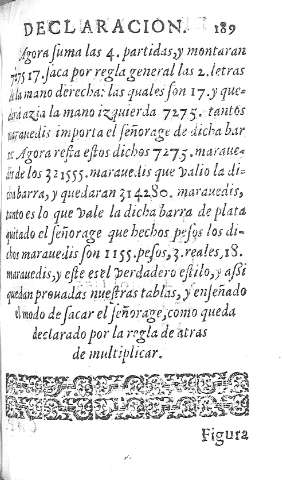 DECLARACION. 189
Agora suma las 4. partidas, y montaran
727517. saca por regla general las 2. letras
de la mano derecha: las quales son 17. y que-
dará azia la mano izquierda 7275. tantos
marauedis importa el señorage de dicha bar
ra: Agora resta estos dichos 7275. maraue-
dis de los 321555. marauedis que valio la di-
cha barra, y quedaran 314280. marauedis,
tanto es lo que vale la dicha barra de plata
quitado el señorage que hechos pesos los di-
chos marauedis son 1155. pesos, 3. reales, 18.
marauedis, y este es el verdadero estilo, y assi
quedan prouadas nuestras tablas, y enseñado
el modo de sacar el señorage, como queda
declarado por la regla de atras
de multiplicar.
Figura